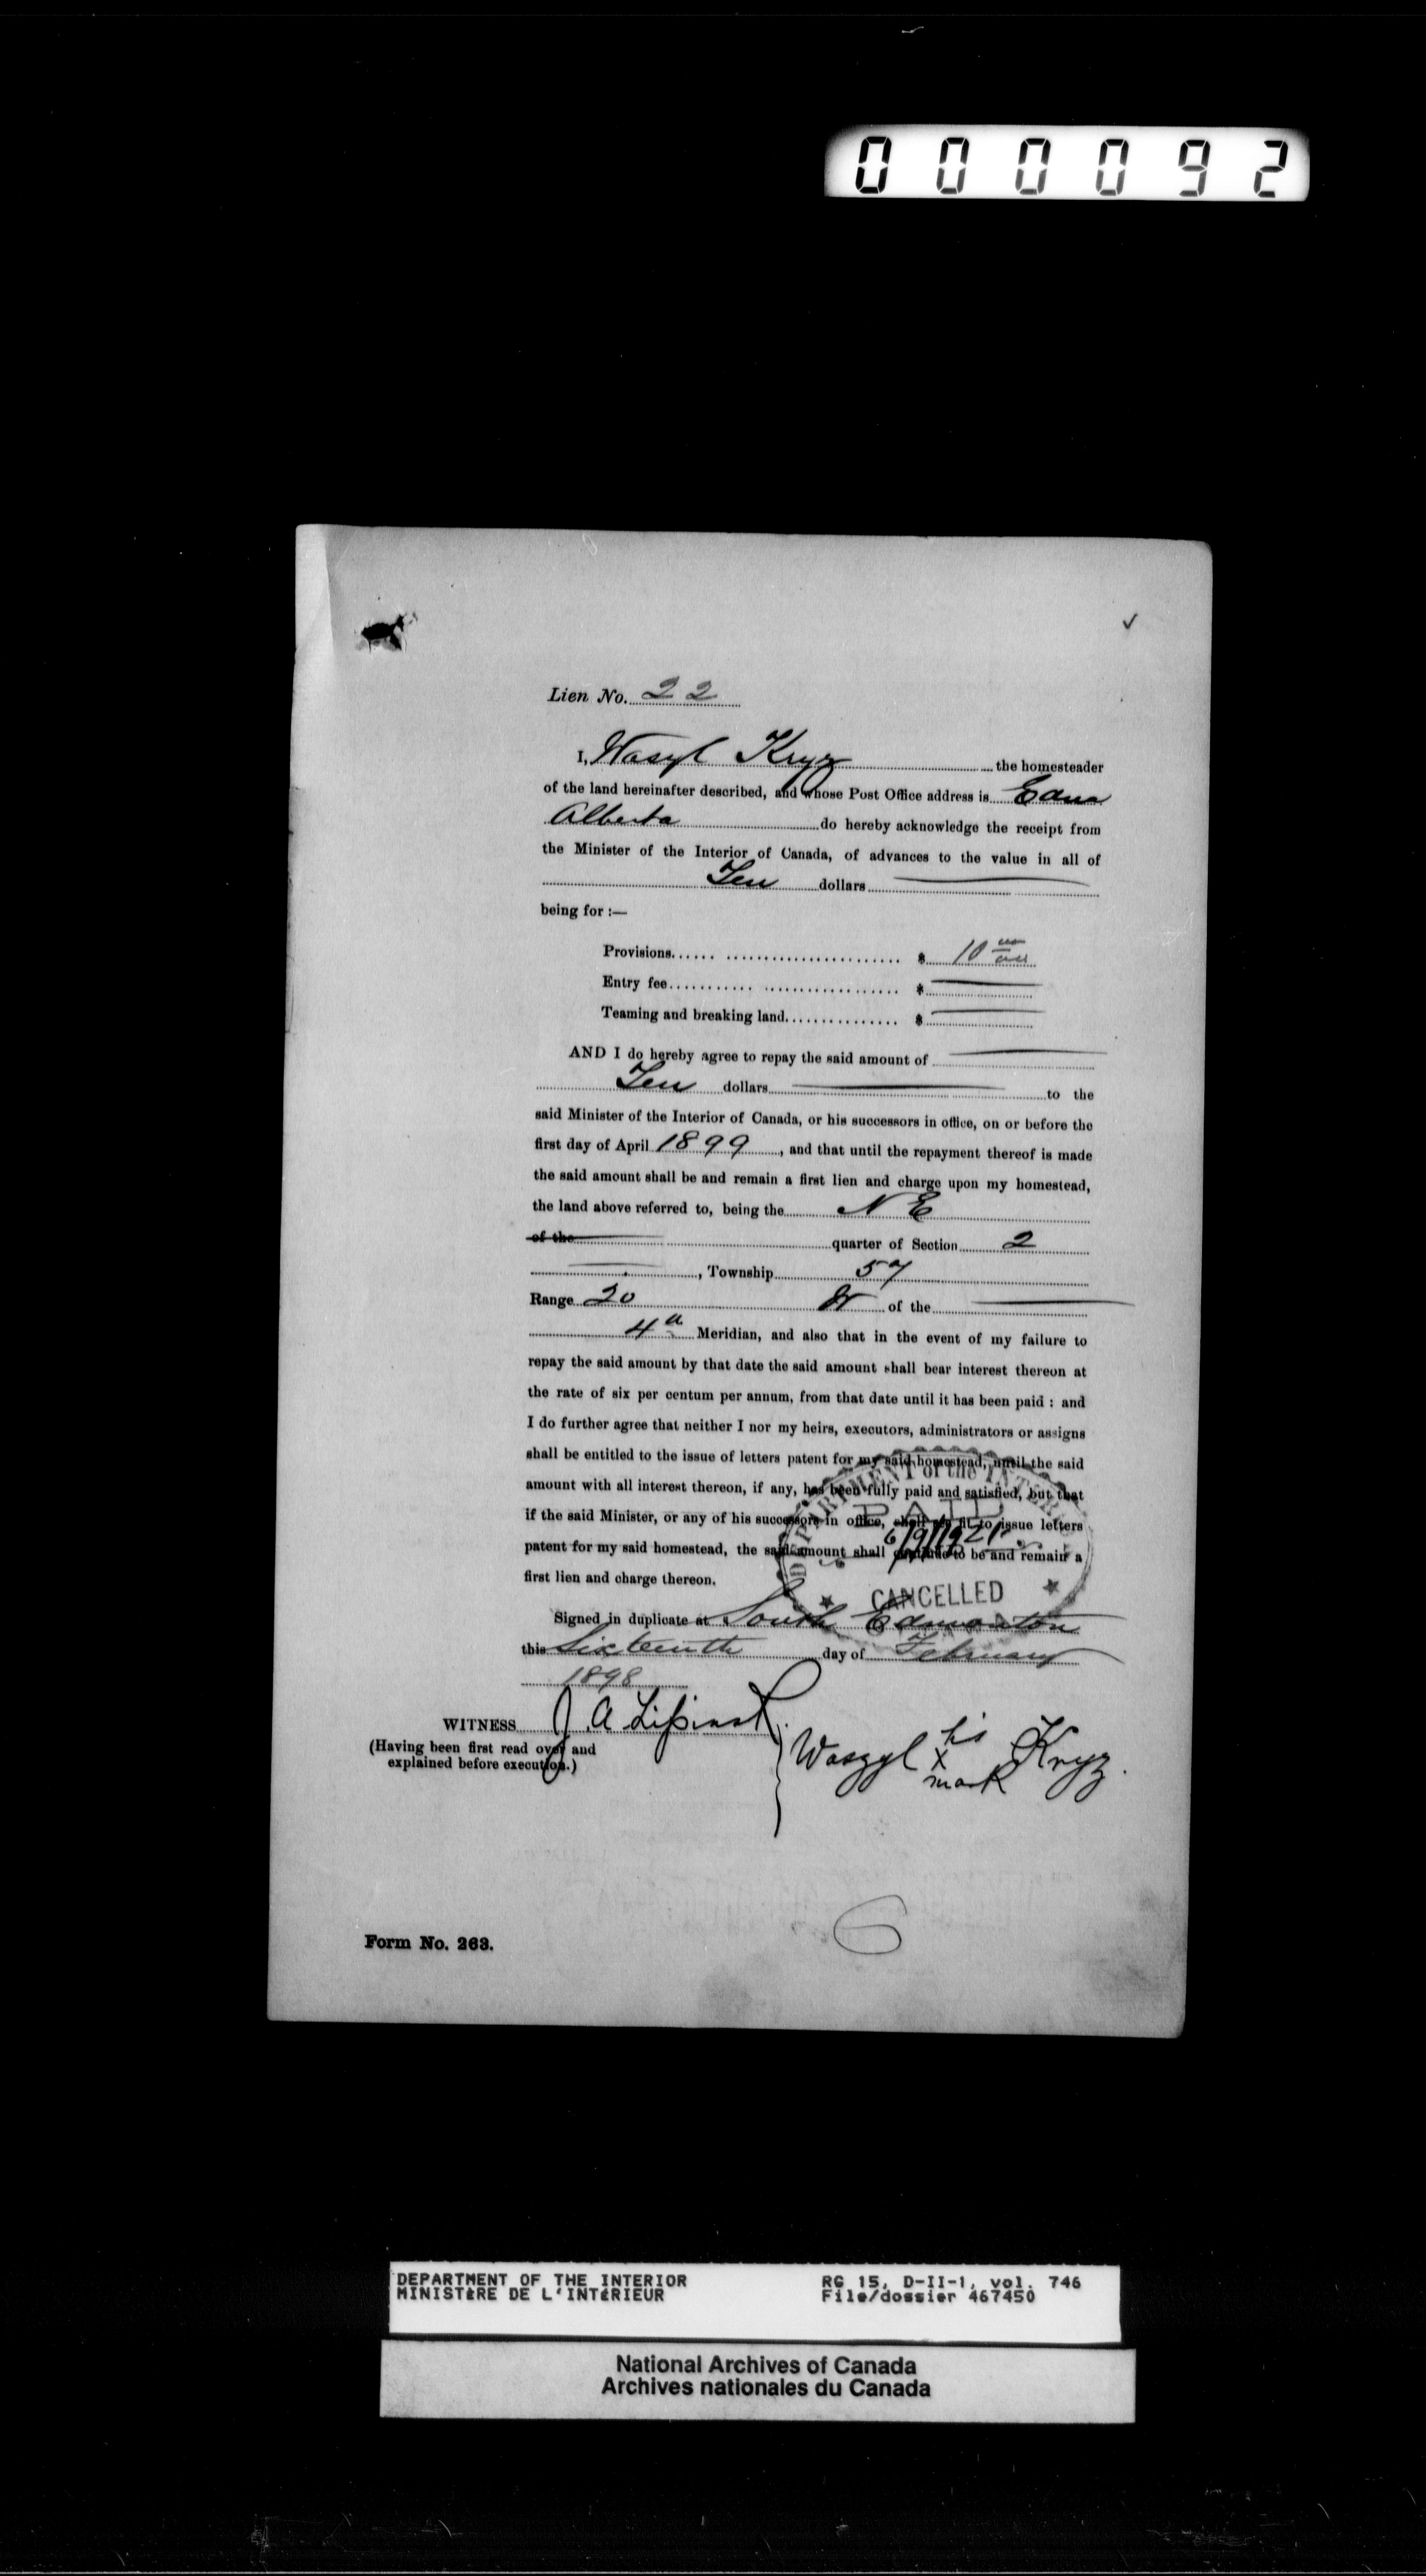 000092
✓
Lien No. 22
I, Wasyl Kryz the homesteader
of the land hereinafter described, and whose Post Office address is Edna
Alberta do hereby acknowledge the receipt from
the Minister of the Interior of Canada, of advances to the value in all of
Ten dollars
being for :—
Provisions $ 10 00/00
Entry fee $
Teaming and breaking land $
AND I do hereby agree to repay the said amount of
Ten dollars to the
said Minister of the Interior of Canada, or his successors in office, on or before the
first day of April 1899, and that until the repayment thereof is made
the said amount shall be and remain a first lien and charge upon my homestead,
the land above referred to, being the N E
of the quarter of Section 2
, Township 57
Range 20 W of the
4th Meridian, and also that in the event of my failure to
repay the said amount by that date the said amount shall bear interest thereon at
the rate of six per centum per annum, from that date until it has been paid : and
I do further agree that neither I nor my heirs, executors, administrators or assigns
shall be entitled to the issue of letters patent for my said homestead, until the said
amount with all interest thereon, if any, has been fully paid and satisfied, but that
if the said Minister, or any of his successors in office, shall see fit to issue letters
patent for my said homestead, the said amount shall continue to be and remain a
first lien and charge thereon.
DEPARTMENT of the INTERIOR
PAID
CANCELLED
Signed in duplicate at South Edmonton
this Sixteenth day of February
1898
WITNESS J A Lipinsk
(Having been first read over and
explained before execution.)
Waszyl his x mark Kryz.
6
Form No. 263.
DEPARTMENT OF THE INTERIOR RG 15, D-II-1, vol. 746
MINISTÈRE DE L'INTÉRIEUR File/dossier 467450
National Archives of Canada
Archives nationales du Canada